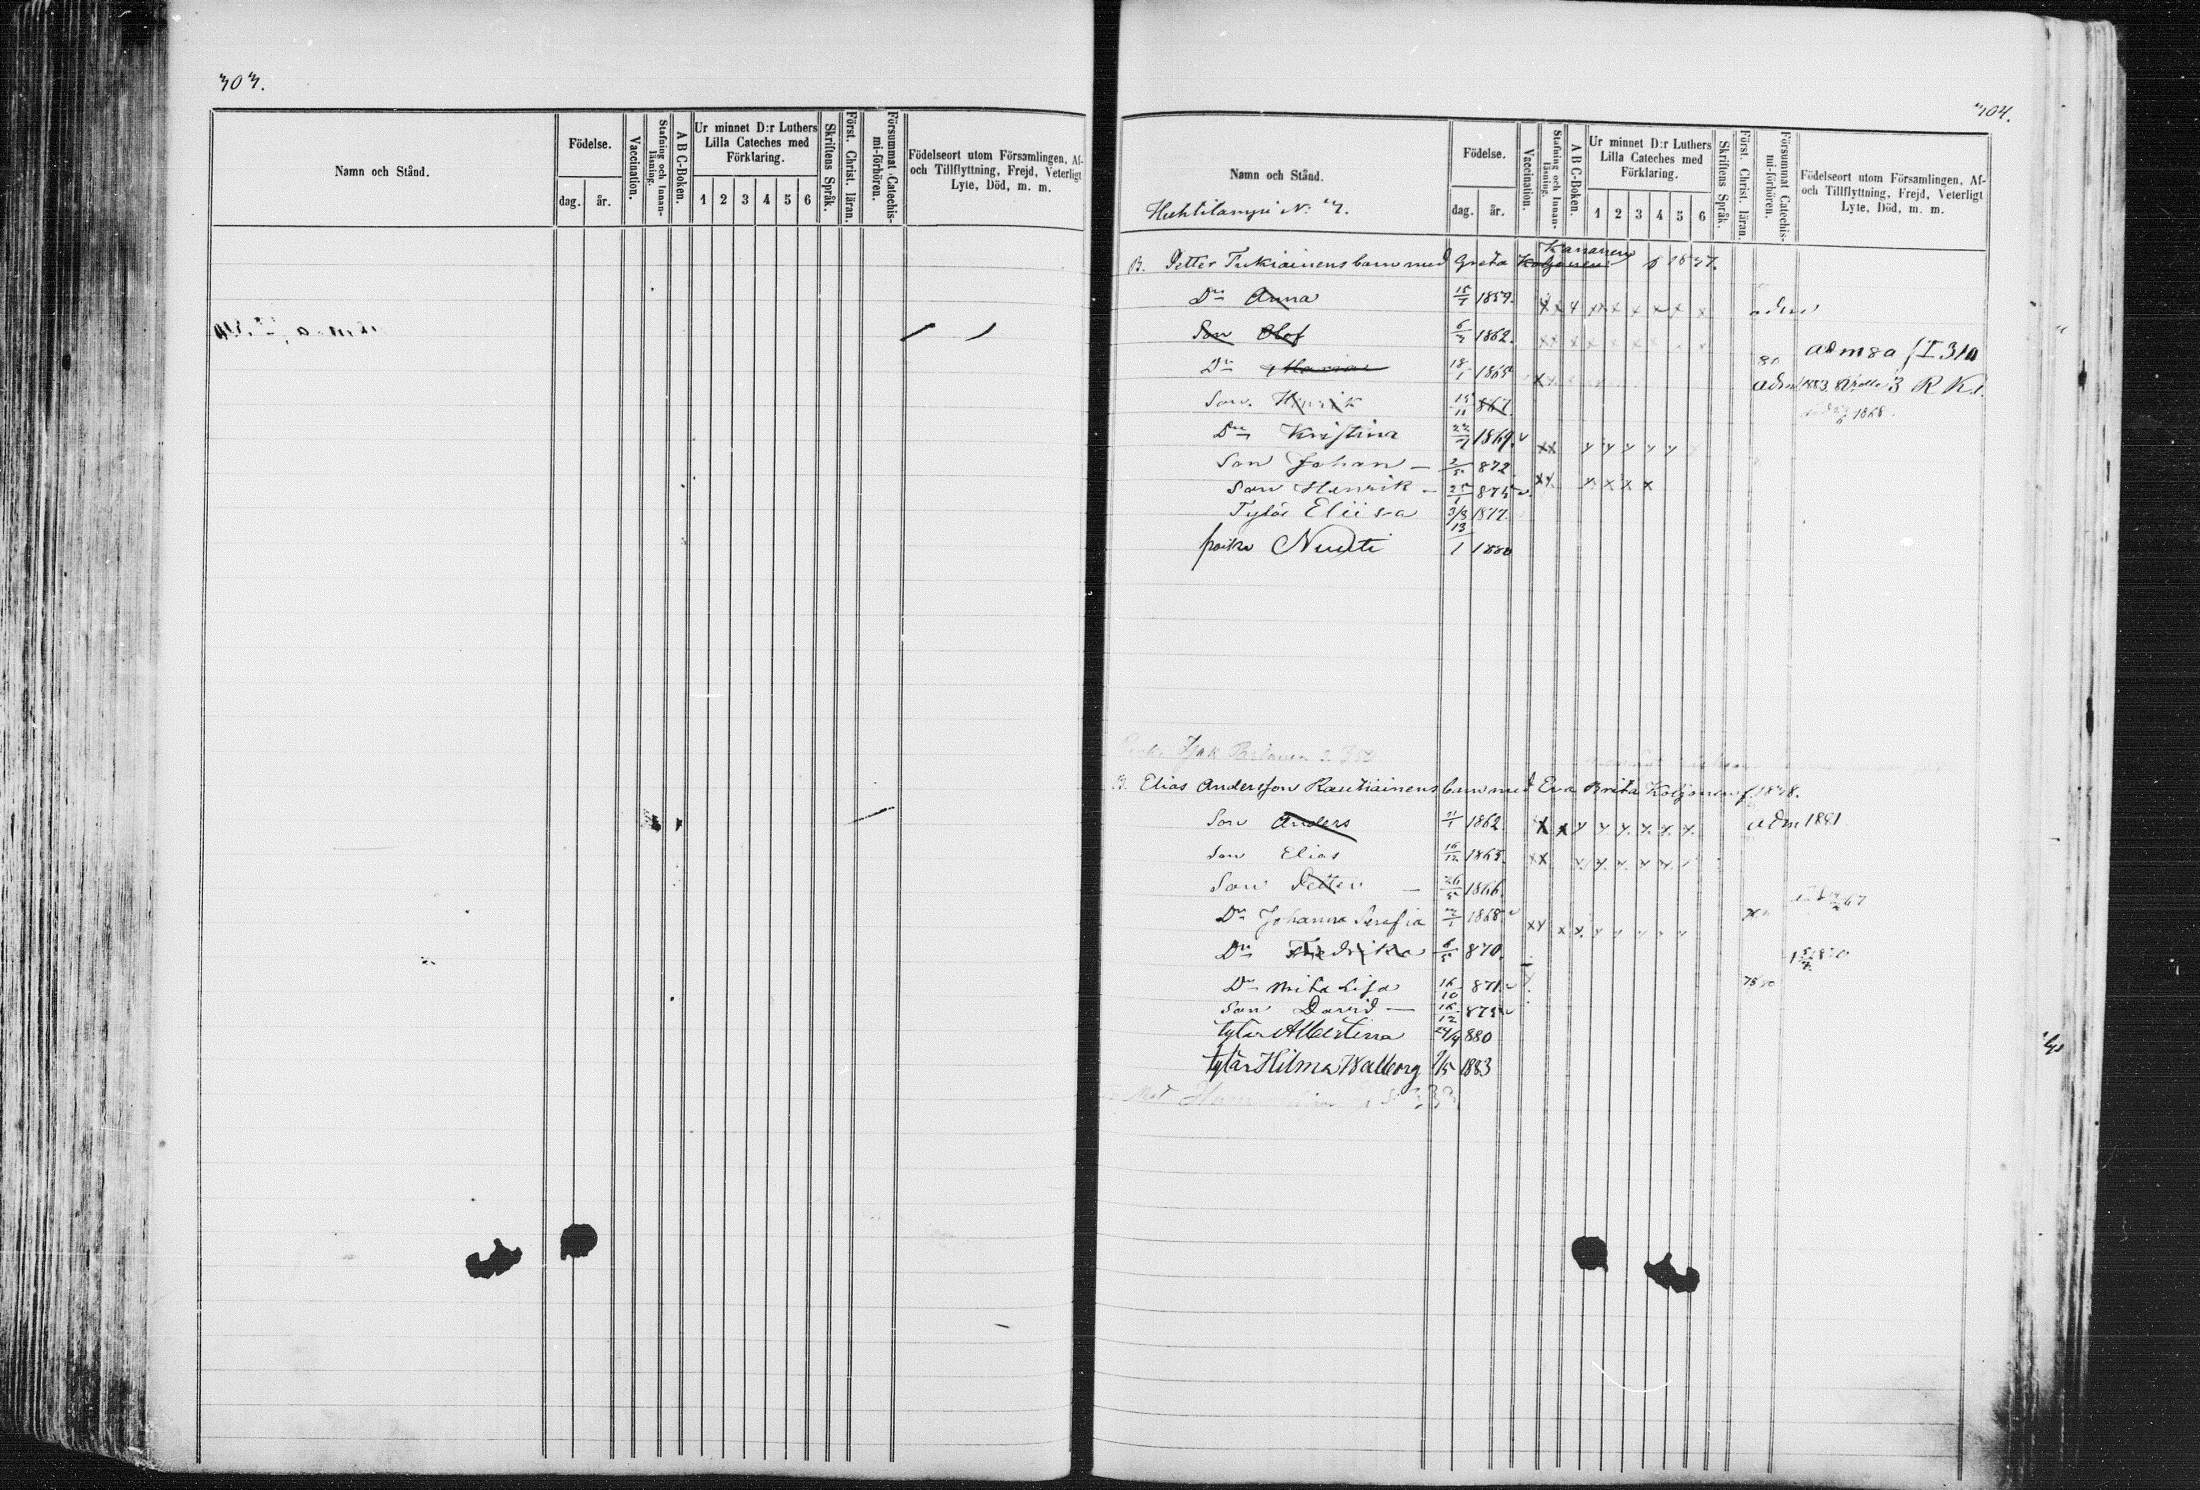 303.
Namn och Stånd.
Födelse.
dag. år.
Vaccination.
Stafning och Innan-läsning.
A B C-Boken.
Ur minnet D:r Luthers Lilla Cateches med Förklaring.
1 2 3 4 5 6
Skriftens Språk.
Först. Christ. läran.
Försummat Catechis-mi-förhören.
Födelseort utom Församlingen, Af- och Tillflyttning, Frejd, Veterligt Lyte, Död, m. m.
304.
Namn och Stånd.
Huhtilampi N:o 3.
Födelse.
dag. år.
Vaccination.
Stafning och Innan-läsning.
A B C-Boken.
Ur minnet D:r Luthers Lilla Cateches med Förklaring.
1 2 3 4 5 6
Skriftens Språk.
Först. Christ. läran.
Försummat Catechis-mi-förhören.
Födelseort utom Församlingen, Af- och Tillflyttning, Frejd, Veterligt Lyte, Död, m. m.
Kananen
B. Petter Tukiainens barn med Greta Koljonen f 1837.
Dr Anna 15/7 1859. x x x x x x x x x adm
Son Olof 6/3 1862. x x x x x x x x adm 80 / I 310
Dr Maria 18/1 1865 x x adm 1883 3 R K.
Son Henrik 15/11 867. 1868
Dr Kristina 22/7 1869. x x x x x x x
Son Johan — 2/5 872
Son Henrik — 25/1 875 x x x x x x
Tytär Eliisa 3/3 1877.
poika Nuuti 13/1 1880
B. Elias Andersson Rautiainens barn med Eva Brita Koljonen f. 1838.
Son Anders 21/1 1862. x x x x x x x x adm 1881
Son Elias 16/12 1863. x x x x x x x
Son Petter — 26/5 1866. 67
Dr Johanna Serafia 1868 x x x x x x x x x
Dr Fredrika — 6/5 870. 1870
Dr Brita Lisa 16/10 871.
Son David — 16/12 875
tytär Albertina 24/4 880
tytär Hilma Walborg 1/5 1883